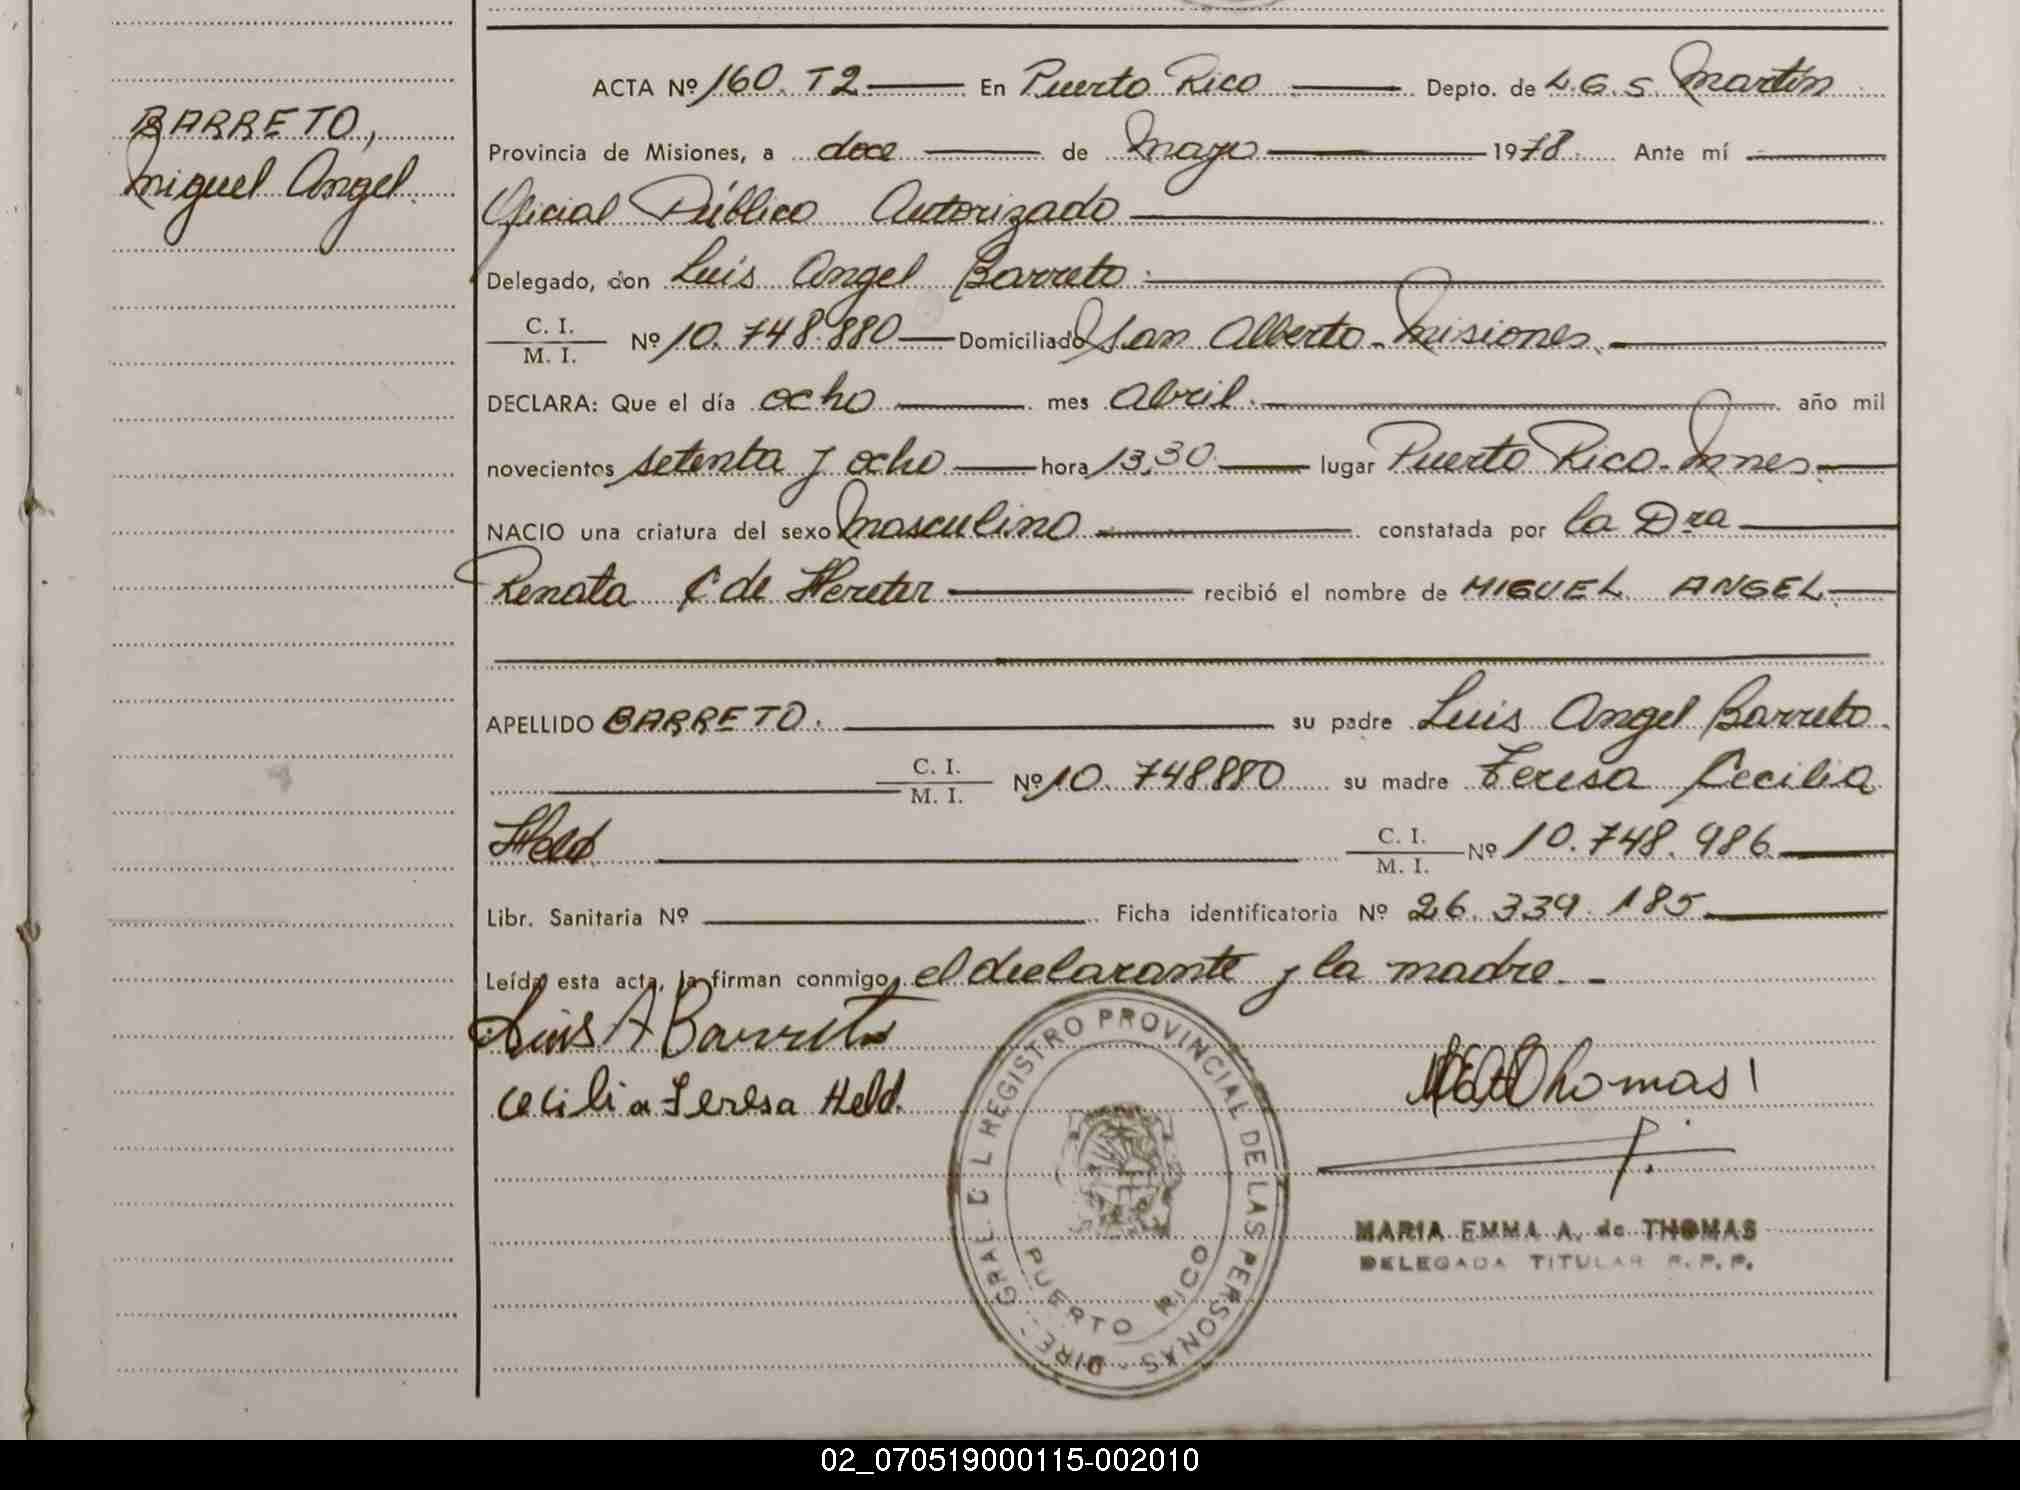 BARRETO,
Miguel Angel.
ACTA Nº 160. T2 En Puerto Rico Depto. de L. G. S. Martín
Provincia de Misiones, a doce de Mayo 1978. Ante mí
Oficial Público Autorizado
Delegado, con Luis Angel Barreto.
C. I.
M. I. Nº 10.748.880 Domiciliado San Alberto - Misiones.
DECLARA: Que el día ocho mes Abril. año mil
novecientos setenta y ocho hora 13,30 lugar Puerto Rico - Mnes.
NACIO una criatura del sexo Masculino constatada por la Dra
Renata C de Hereter recibió el nombre de MIGUEL ANGEL.
APELLIDO BARRETO. su padre Luis Angel Barreto.
C. I.
M. I. Nº 10.748.880 su madre Teresa Cecilia
Held
C. I.
M. I. Nº 10.748.986
Libr. Sanitaria Nº Ficha identificatoria Nº 26.339.185
Leída esta acta, la firman conmigo, el declarante y la madre. -
Luis A Barreto
Cecilia Teresa Held.
Thomas
DIRE. GRAL. DEL REGISTRO PROVINCIAL DE LAS PERSONAS -
PUERTO RICO
MARIA EMMA A. de THOMAS
DELEGADA TITULAR R. P. P.
02_070519000115-002010